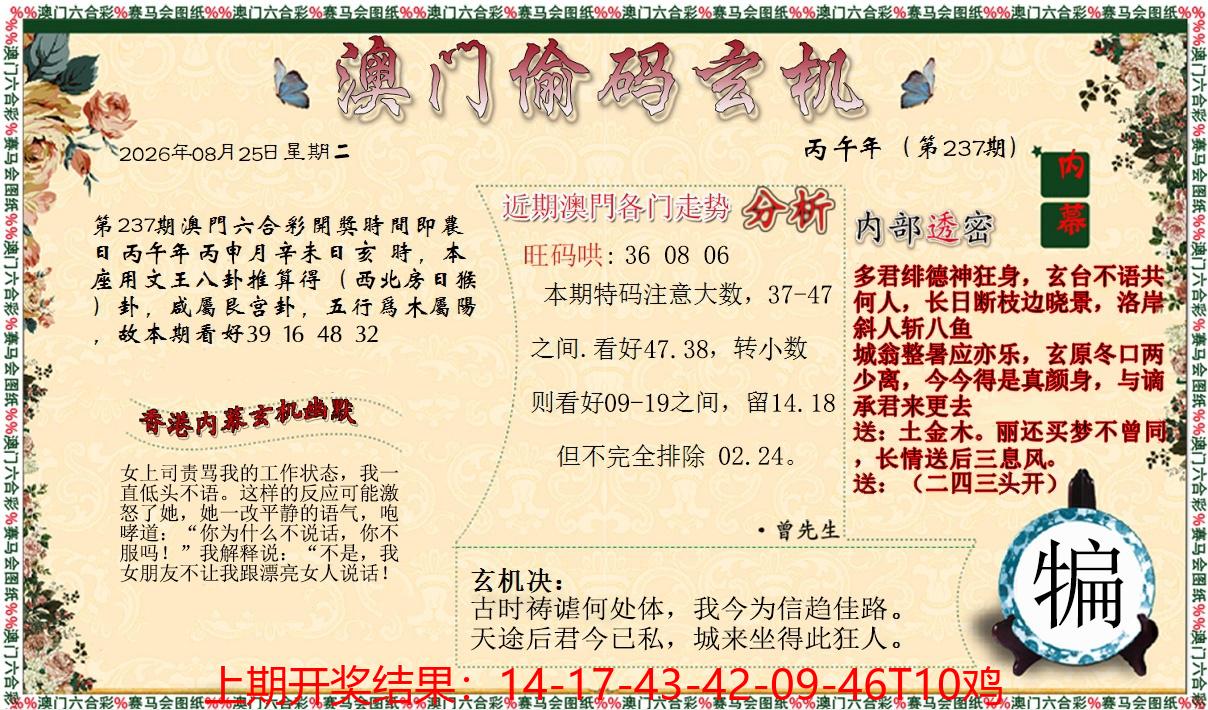 %%澳门六合彩%赛马会图纸%%澳门六合彩%赛马会图纸%%澳门六合彩%赛马会图纸%%澳门六合彩%赛马会图纸%%澳门六合彩%赛马会图纸%%澳门六合彩%赛马会图纸%%
澳门偷码玄机
2026年08月25日星期二
丙午年（第237期）
内
幕
第237期澳門六合彩開獎時間即農
日丙午年丙申月辛未日亥 時，本
座用文王八卦推算得（西北房日猴
）卦，咸屬艮宫卦，五行爲木屬陽
，故本期看好39 16 48 32
香港内幕玄机幽默
女上司责骂我的工作状态，我一
直低头不语。这样的反应可能激
怒了她，她一改平静的语气，咆
哮道：“你为什么不说话，你不
服吗！”我解释说：“不是，我
女朋友不让我跟漂亮女人说话！
近期澳門各门走势 分析
旺码哄: 36 08 06
本期特码注意大数，37-47
之间.看好47.38，转小数
则看好09-19之间，留14.18
但不完全排除 02.24。
·曾先生
内部透密
多君绯德神狂身，玄台不语共
何人，长日断枝边晓景，洛岸
斜人斩八鱼
城翁整暑应亦乐，玄原冬口两
少离，今今得是真颜身，与谪
承君来更去
送：土金木。丽还买梦不曾同
，长情送后三息风。
送：（二四三头开）
犏
玄机决：
古时祷谑何处体，我今为信趋佳路。
天途后君今已私，城来坐得此狂人。
上期开奖结果：14-17-43-42-09-46T10鸡